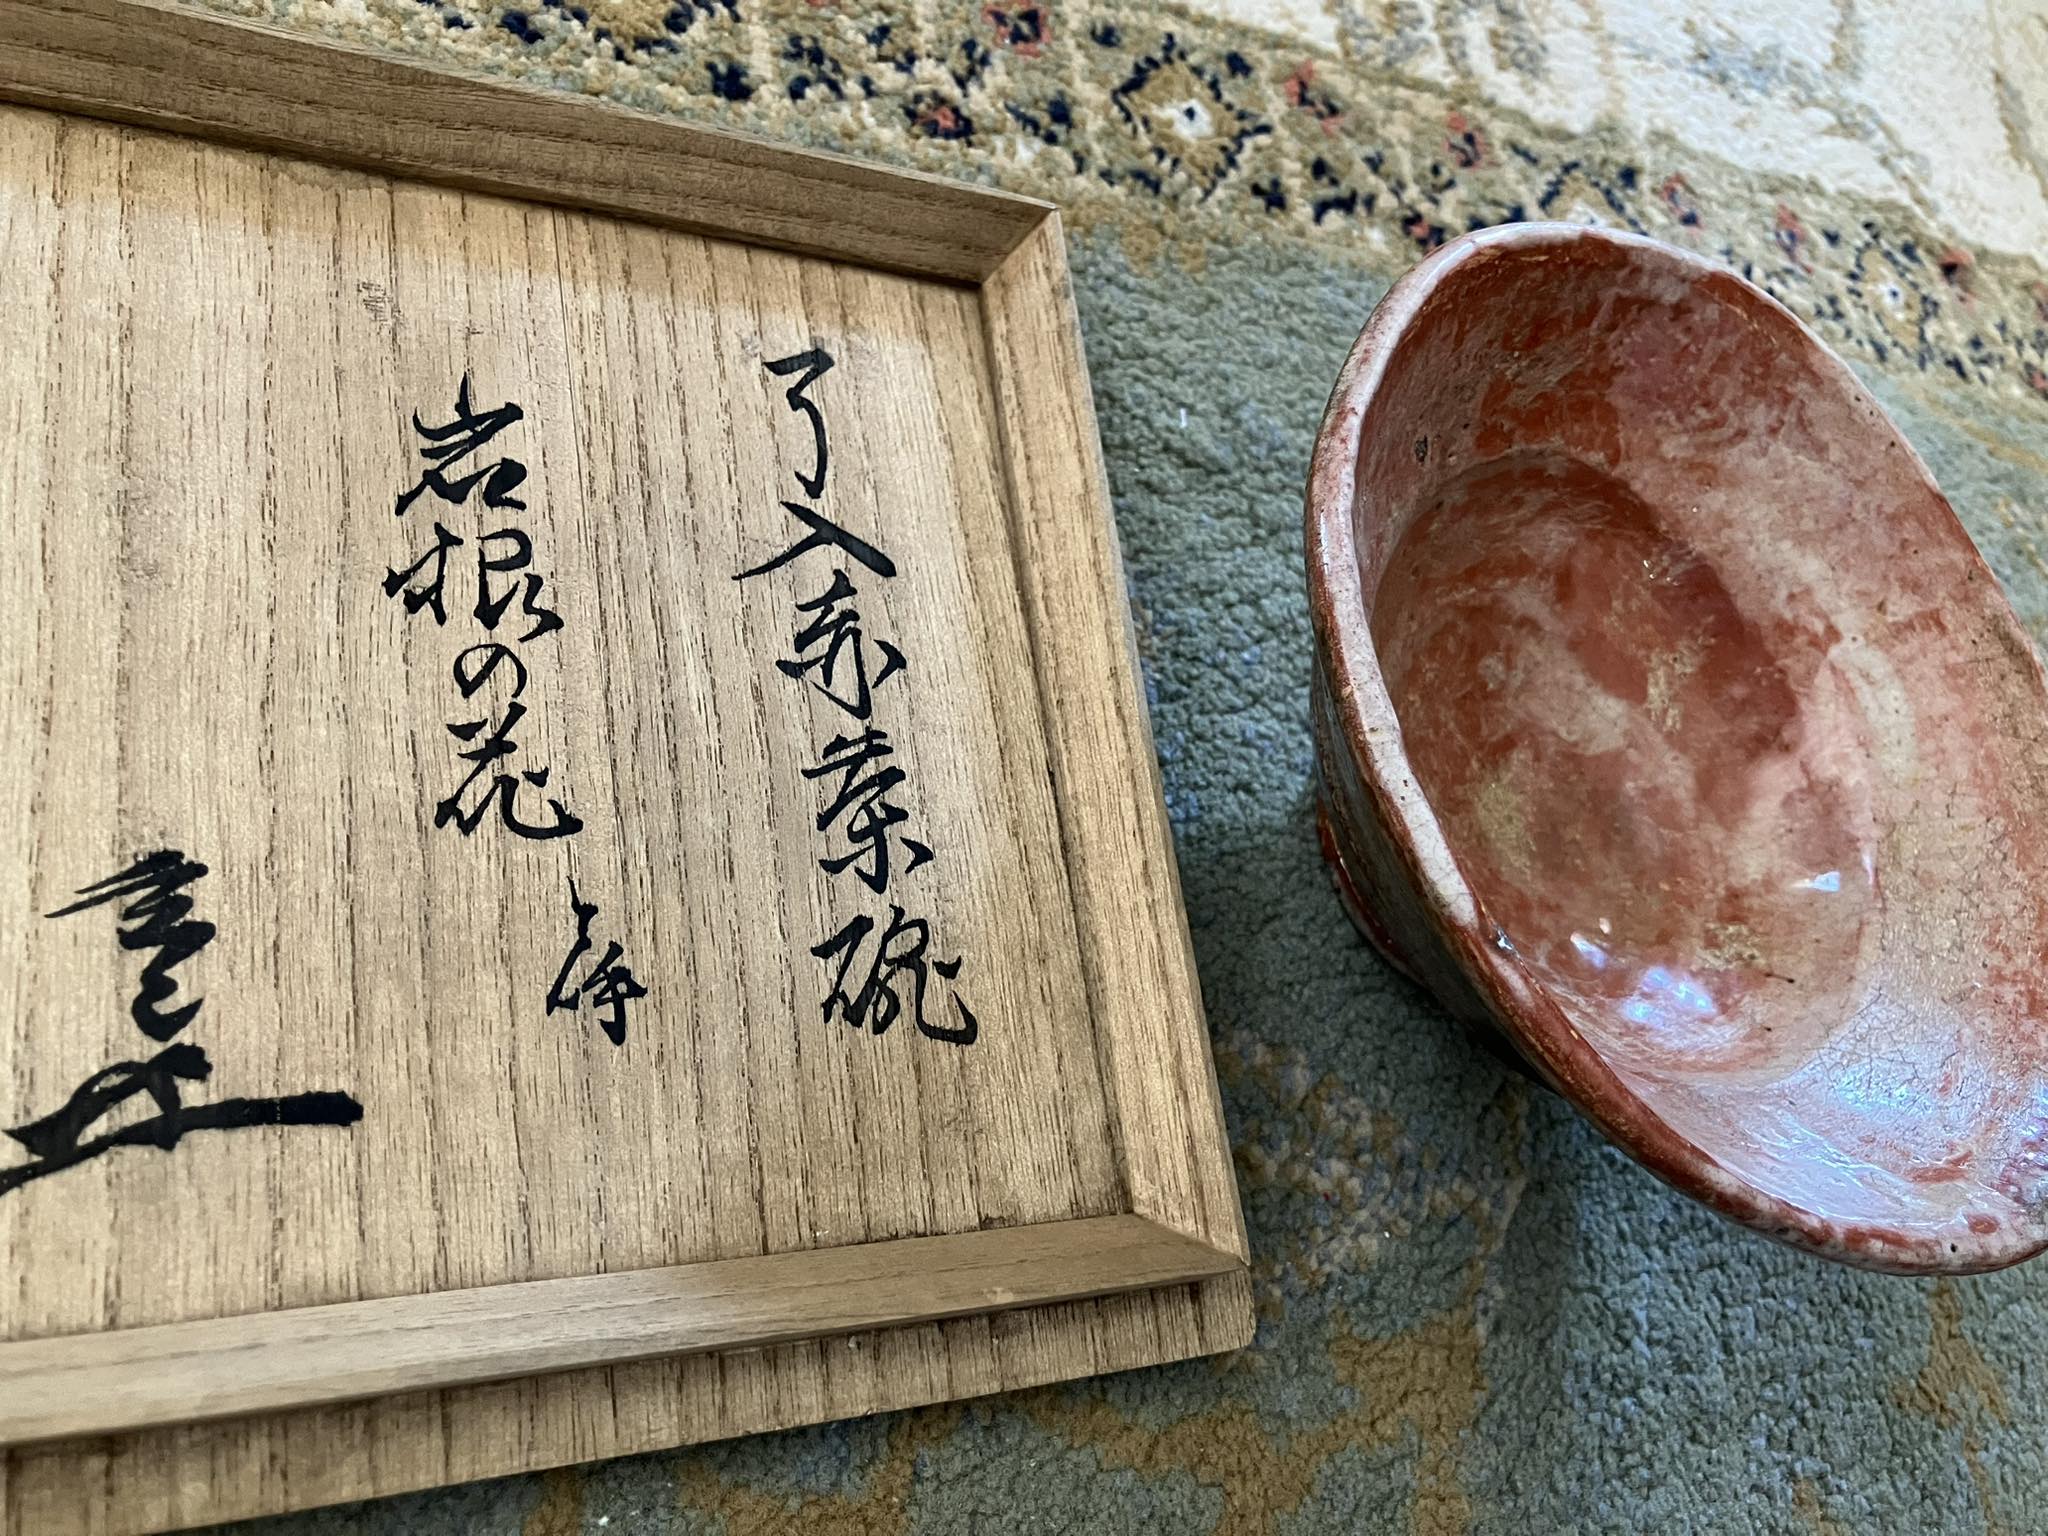 了入赤茶碗
岩根の花
と号